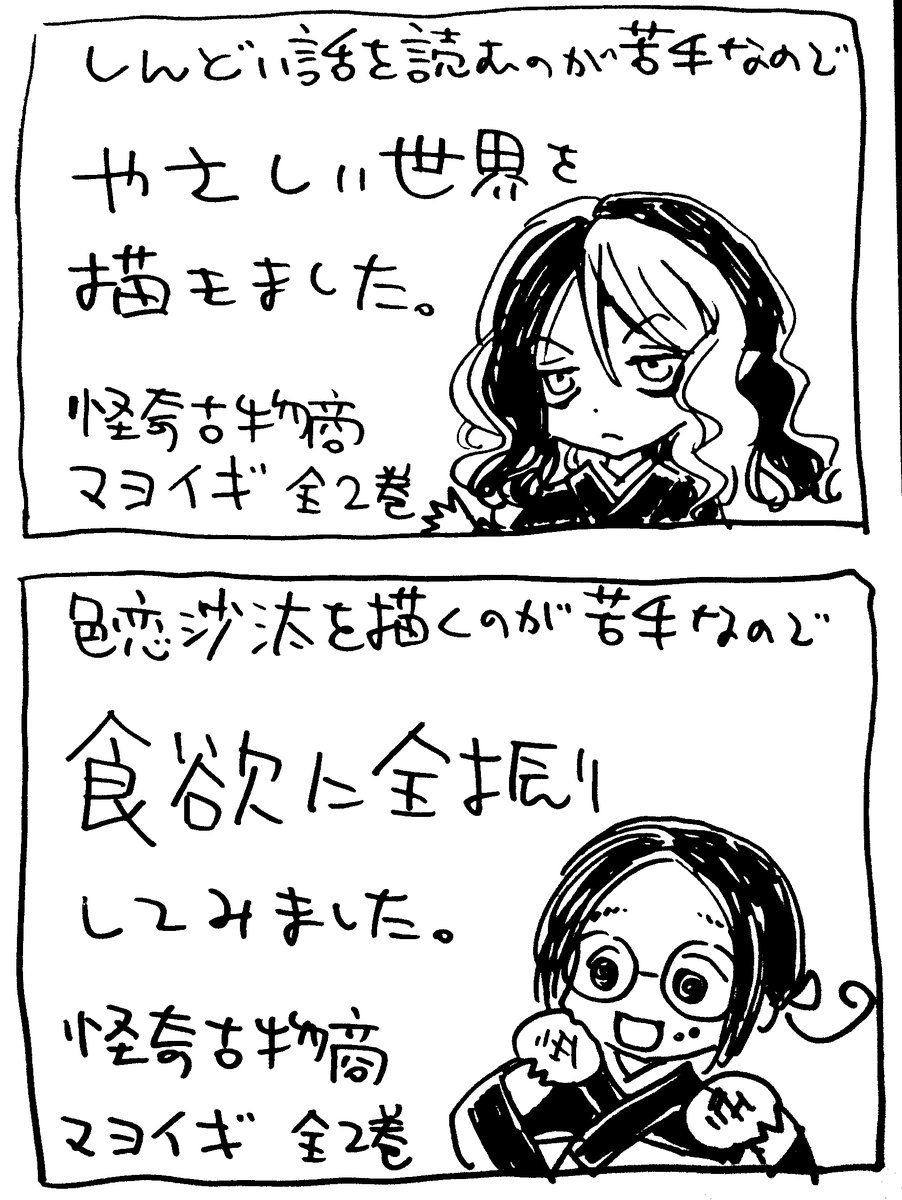 しんどい話を読むのが苦手なので
やさしい世界を
描きました。
怪奇古物商
マヨイギ 全2巻
色恋沙汰を描くのが苦手なので
食欲に全振り
してみました。
怪奇古物商
マヨイギ 全2巻